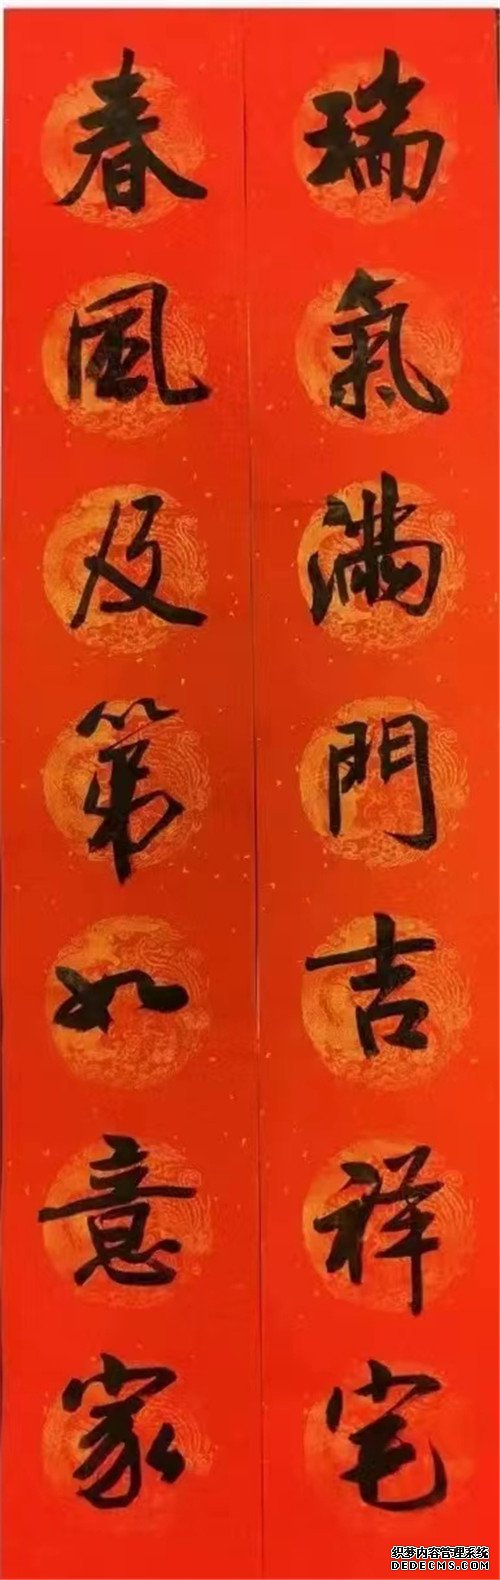 瑞氣滿門吉祥宅
春風及第如意家
织梦内容管理系统
DEDECMS.COM